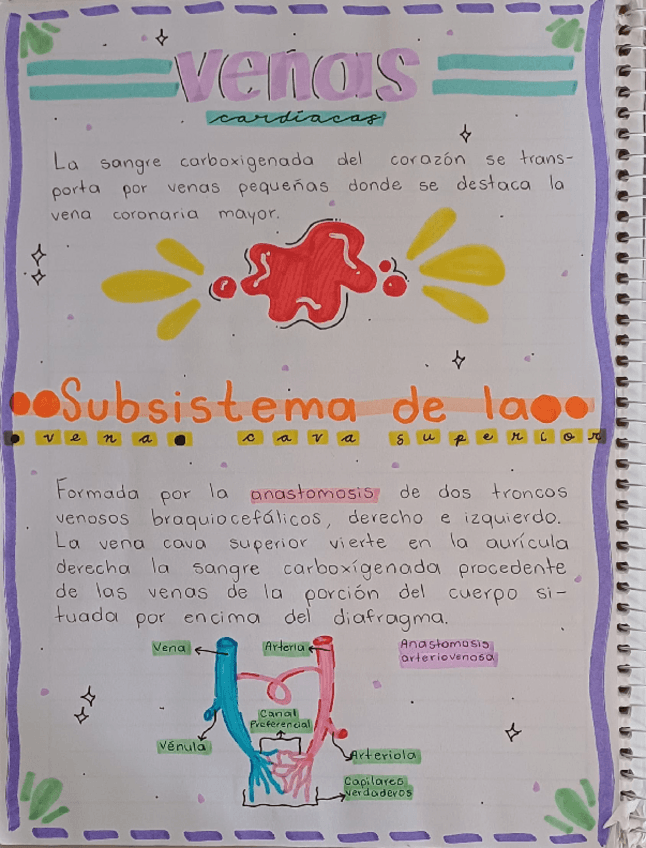 venas
cardiacas
La sangre carboxigenada del corazón se trans-
porta por venas pequeñas donde se destaca la
vena coronaria mayor.
Subsistema de la
vena cava superior
Formada por la anastomosis de dos troncos
venosos braquiocefálicos, derecho e izquierdo.
La vena cava superior vierte en la aurícula
derecha la sangre carboxígenada procedente
de las venas de la porción del cuerpo si-
tuada por encima del diafragma.
Vena
Arteria
Anastomosis
arteriovenosa
Canal
Preferencial
Vénula
Arteriola
Capilares
verdaderos